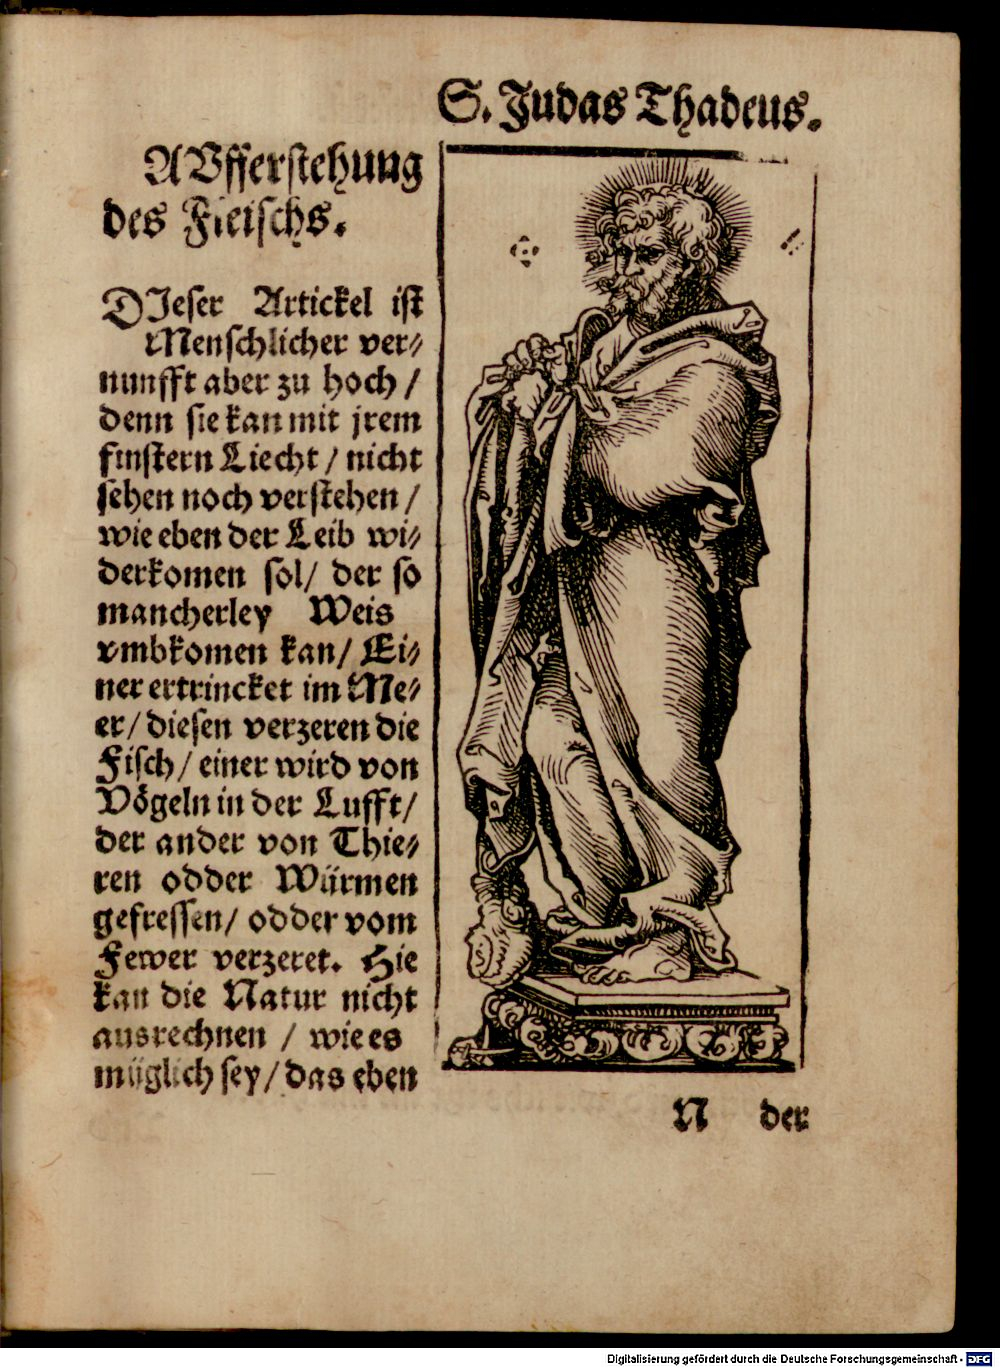 S. Judas Thadeus.
AVfferstehung
des Fleischs.
DJeser Artickel ist
Menschlicher ver⸗
nunfft aber zu hoch /
denn sie kan mit jrem
finstern Liecht / nicht
sehen noch verstehen /
wie eben der Leib wi⸗
derkomen sol / der so
mancherley Weis
vmbkomen kan / Ei⸗
ner ertrincket im Me⸗
er / diesen verzeren die
Fisch / einer wird von
Vögeln in der Lufft /
der ander von Thie⸗
ren odder Würmen
gefressen / odder vom
Fewer verzeret. Hie
kan die Natur nicht
ausrechnen / wie es
müglich sey / das eben
N der
Digitalisierung gefördert durch die Deutsche Forschungsgemeinschaft - DFG